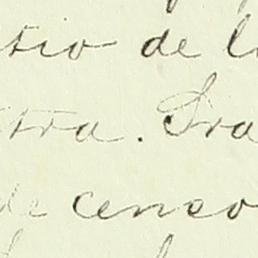 tio de l
tra. Sra
de cenco